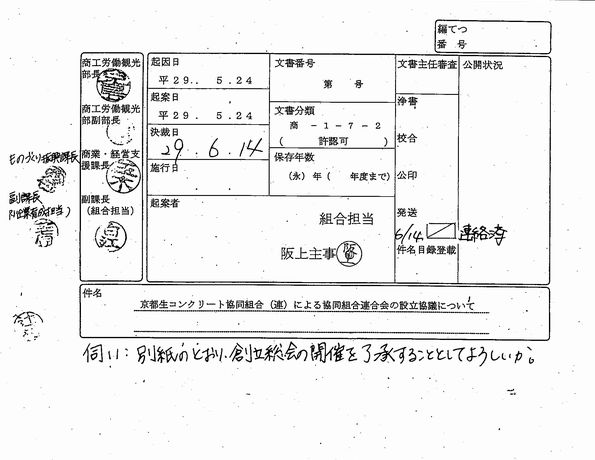 編てつ
番　号
商工労働観光
部長
商工労働観光
部副部長
商業・経営支
援課長
副課長
（組合担当）
副課長
起因日
平２９．　５．２４
起案日
平２９．　５．２４
決裁日
29．6．14
施行日
起案者
組合担当
阪上主事
文書番号
第　　号
文書分類
商　－１－７－２
（　許認可　）
保存年数
（永）年（　　年度まで）
文書主任審査
浄書
校合
公印
発送
6/14 連絡済
件名目録登載
公開状況
件名
京都生コンクリート協同組合（連）による協同組合連合会の設立協議について
伺い：別紙のとおり、創立総会の開催を了承することとしてよろしいか。